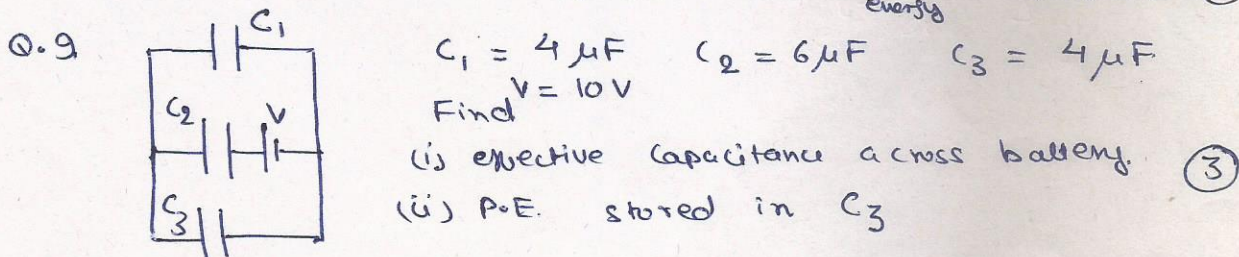 energy
Q.9 C₁ C₁ = 4 μF C₂ = 6 μF C₃ = 4 μF
V = 10 V
Find
C₂ V
(i) effective capacitance across battery. 3
C₃ (ii) P.E. stored in C₃